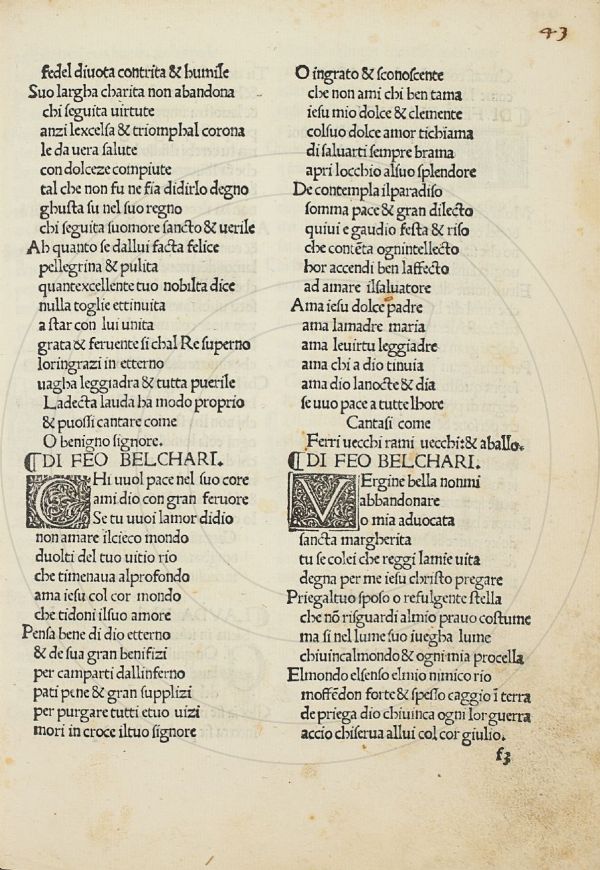 43
fedel diuota contrita & humile
Suo largha charita non abandona
chi seguita uirtute
anzi lexcelsa & triomphal corona
le da uera salute
con dolceze compiute
tal che non fu ne fia didirlo degno
ghusta su nel suo regno
chi seguita suomore sancto & uerile
Ah quanto se dallui facta felice
pellegrina & pulita
quantexcellente tuo nobilta dice
nulla toglie ettinuita
a star con lui unita
grata & feruente si chal Re superno
loringrazi in etterno
uagha leggiadra & tutta puerile
Ladecta lauda ha modo proprio
& puossi cantare come
O benigno signore.
⁋DI FEO BELCHARI.
CHi uuol pace nel suo core
ami dio con gran feruore
Se tu uuoi lamor didio
non amare ilcieco mondo
duolti del tuo uitio rio
che timenaua alprofondo
ama iesu col cor mondo
che tidoni ilsuo amore
Pensa bene di dio etterno
& de sua gran benifizi
per camparti dallinferno
pati pene & gran supplizi
per purgare tutti etuo uizi
mori in croce iltuo signore
O ingrato & sconoscente
che non ami chi ben tama
iesu mio dolce & clemente
colsuo dolce amor tichiama
di saluarti sempre brama
apri locchio alsuo splendore
De contempla ilparadiso
somma pace & gran dilecto
quiui e gaudio festa & riso
che contēta ognintellecto
hor accendi ben laffecto
ad amare ilsaluatore
Ama iesu dolce padre
ama lamadre maria
ama leuirtu leggiadre
ama chi a dio tinuia
ama dio lanocte & dia
se uuo pace a tutte lhore
Cantasi come
Ferri uecchi rami uecchi: & aballo.
⁋DI FEO BELCHARI.
VErgine bella nonmi
abbandonare
o mia aduocata
sancta margherita
tu se colei che reggi lamie uita
degna per me iesu christo pregare
Priegaltuo sposo o refulgente stella
che nō risguardi almio prauo costume
ma si nel lume suo iuegha lume
chiuincalmondo & ogni mia procella
Elmondo elsenso elmio nimico rio
moffēdon forte & spesso caggio ī terra
de priega dio chiuinca ogni lor guerra
accio chiserua allui col cor giulio.
f3